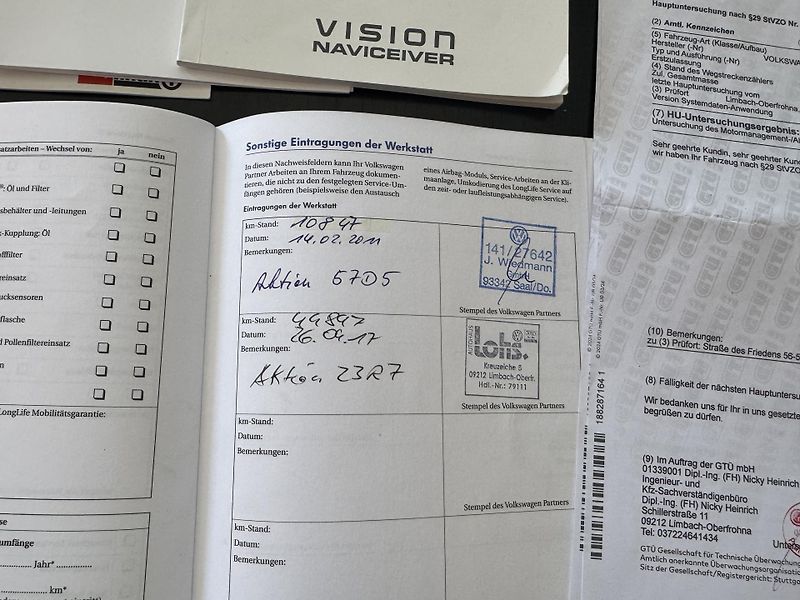 VISION
NAVICEIVER
satzarbeiten – Wechsel von:
ja
nein
Öl und Filter
behälter und -leitungen
x-Kupplung: Öl
filter
einsatz
ucksensoren
flasche
d Pollenfiltereinsatz
n
LongLife Mobilitätsgarantie:
se
umfänge
Jahr*
km*
Sonstige Eintragungen der Werkstatt
In diesen Nachweisfeldern kann Ihr Volkswagen
Partner Arbeiten an Ihrem Fahrzeug dokumen-
tieren, die nicht zu den festgelegten Service-Um-
fängen gehören (beispielsweise den Austausch
eines Airbag-Moduls, Service-Arbeiten an der Kli-
maanlage, Umkodierung des LongLife Service auf
den zeit- oder laufleistungsabhängigen Service).
Eintragungen der Werkstatt
km-Stand: 10847
Datum: 14.02.2011
Bemerkungen:
Aktion 57D5
141/27642
J. Wiedmann
GmbH
93342 Saal/Do.
Stempel des Volkswagen Partners
km-Stand: 44847
Datum: 26.04.17
Bemerkungen:
Aktion 23R7
AUTOHAUS
Lohs.
Kreuzeiche 5
09212 Limbach-Oberfr.
Hdl.-Nr.: 79111
Stempel des Volkswagen Partners
km-Stand:
Datum:
Bemerkungen:
Stempel des Volkswagen Partners
km-Stand:
Datum:
Bemerkungen:
Hauptuntersuchung nach §29 StVZO Nr.
(2) Amtl. Kennzeichen
(5) Fahrzeug-Art (Klasse/Aufbau)
Hersteller (-Nr)
VOLKSWA
Typ und Ausführung (-Nr)
Erstzulassung
(4) Stand des Wegstreckenzählers
Zul. Gesamtmasse
letzte Hauptuntersuchung vom
(3) Prüfort Limbach-Oberfrohna
Version Systemdaten-Anwendung
(7) HU-Untersuchungsergebnis:
Untersuchung des Motormanagement-/A
Sehr geehrte Kundin, sehr geehrter Kunde
wir haben Ihr Fahrzeug nach §29 StVZO
188287164 1
(10) Bemerkungen:
zu (3) Prüfort: Straße des Friedens 56-5
(8) Fälligkeit der nächsten Hauptuntersu
Wir bedanken uns für Ihr in uns gesetzte
begrüßen zu dürfen.
(9) Im Auftrag der GTÜ mbH
01339001 Dipl.-Ing. (FH) Nicky Heinrich
Ingenieur- und
Kfz-Sachverständigenbüro
Dipl.-Ing. (FH) Nicky Heinrich
Schillerstraße 11
09212 Limbach-Oberfrohna
Tel: 037224641434
Unters
GTÜ Gesellschaft für Technische Überwachung
Amtlich anerkannte Überwachungsorganisation
Sitz der Gesellschaft/Registergericht: Stuttga